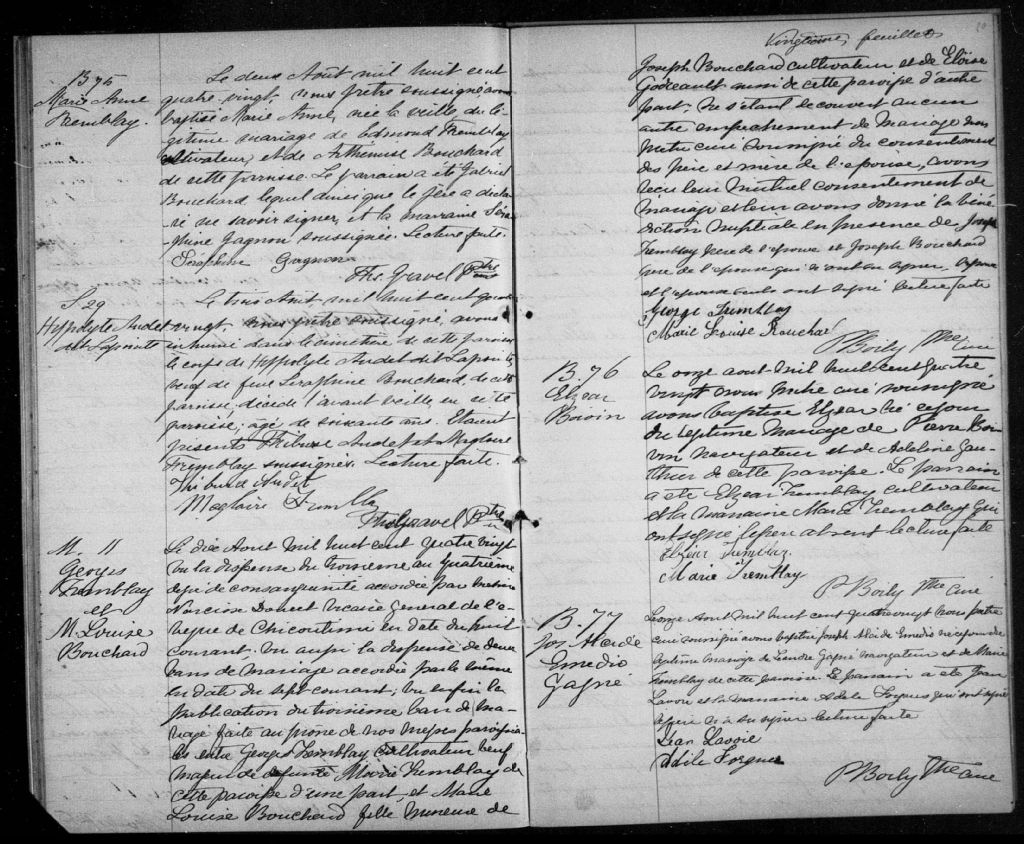 B 75
Marie Anne
Tremblay.
Le deux Août mil huit cent
quatre-vingt, nous prêtre soussigné avons
baptisé Marie Anne, née la veille du lé-
gitime mariage de Edmond Tremblay
cultivateur, et de Arthémise Bouchard
de cette paroisse. Le parrain a été Gabriel
Bouchard lequel ainsi que le père a décla-
ré ne savoir signer, et la marraine Séra-
phine Gagnon soussignée. Lecture faite.
Séraphine Gagnon
Ths. Gravel Ptre
S 29
Hyppolyte Audet
dit Lapointe
Le trois Août mil huit cent quatre
vingt, nous prêtre soussigné, avons
inhumé dans le cimetière de cette paroisse
le corps de Hyppolyte Audet dit Lapointe,
veuf de feue Séraphine Bouchard, de cette
paroisse, décédé l'avant veille, en cette
paroisse, agé de soixante ans. Etaient
présents Tiburse Audet et Magloire
Tremblay soussignés. Lecture faite.
Thiburd Audet
Magloire Trembla
Ths Gravel Ptre
M. 11
Georges
Tremblay
et
M. Louise
Bouchard
Le dix Aout mil huit cent quatre vingt
vu la dispense du troisieme au quatrième
degré de consanguinité accordée par messire
Narcisse Doucet Vicaire General de l'é-
vêque de Chicoutimi en date du huit
courant. Vu aussi la dispense de deux
bans de mariage accordée par le même
en date du sept courant; vu enfin la
publication du troisième ban de ma-
riage faite au prone de nos messes paroissia-
les entre Georges Tremblay cultivateur veuf
majeur de defunte Marie Tremblay de
cette paroisse d'une part, et Marie
Louise Bouchard fille mineure de
Vingtième, feuillet
20
Joseph Bouchard cultivateur et de Eloïse
Godreault aussi de cette paroisse d'autre
part. Ne s'étant decouvert aucun
autre empechement de mariage nous
Pretre curé soussigné du consentement
des père et mère de l'epouse, avons
recu leur mutuel consentement de
mariage et leur avons donné la béné
diction nuptiale en presence de Joseph
Tremblay pere de l'epoux et Joseph Bouchard
pere de l'epouse qui n'ont su signer, l'epoux
et l'epouse seuls ont signé lecture faite
George Tremblay
Marie Louise Bouchar
P Boily Ptre curé
B 76
Elzear
Boivin
Le onze aout mil huit cent quatre
vingt nous Pretre curé soussigné
avons baptise Elzear né ce jour
du legitime mariage de Pierre Boi
vin navigateur et de Adeline Gau-
thier de cette paroisse. Le parrain
a été Elzear Tremblay cultivateur
et la marraine Marie Tremblay qui
ont signé le pere absent lecture faite
Elzéar Tremblay.
Marie Tremblay
P Boily Ptre curé
B. 77
Jos Alcide
Emedio
Gagné
Le onze Aout mil huit cent quatre vingt nous pretre
curé soussigné avons baptise Joseph Alcide Emedio né ce jour du
légitime mariage de Leandre Gagné navigateur et de Marie
Tremblay de cette paroisse. Le parrain a été Jean
Lavoie et la marraine Adele Forgues qui ont signé
le pere n'a su signer lecture faite
Jean Lavoie
Adile Forgues
P Boily Ptre curé